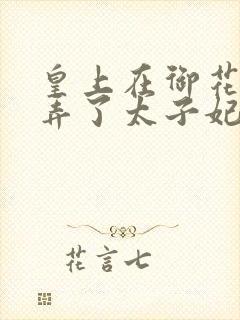 皇上在御花
弄了太子妃
花言七